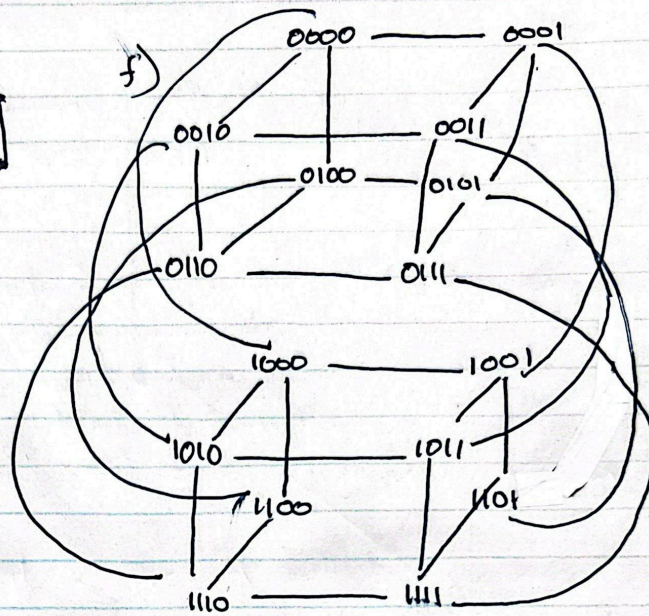 f)
0000 0001
0010 0011
0100 0101
0110 0111
1000 1001
1010 1011
1100 1101
1110 1111